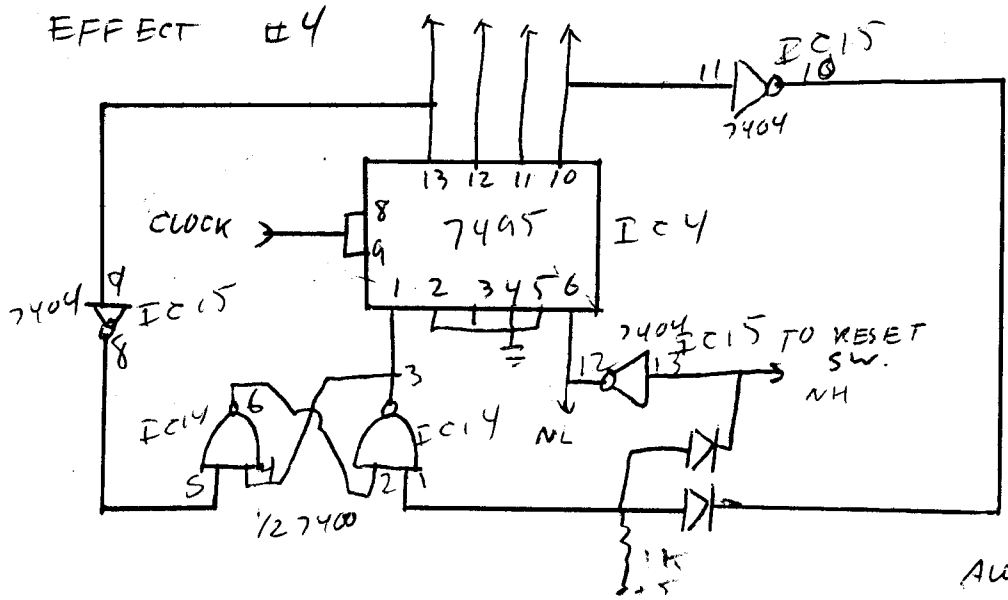 EFFECT #4
IC15
11 10
7404
13 12 11 10
CLOCK
8
9
7495
IC4
1 2 3 4 5 6
7404
9
IC15
8
7404
IC15
12 13
TO RESET
SW.
NH
NL
3
IC14
6
IC14
5 4
2 1
1/2 7400
1K
+5